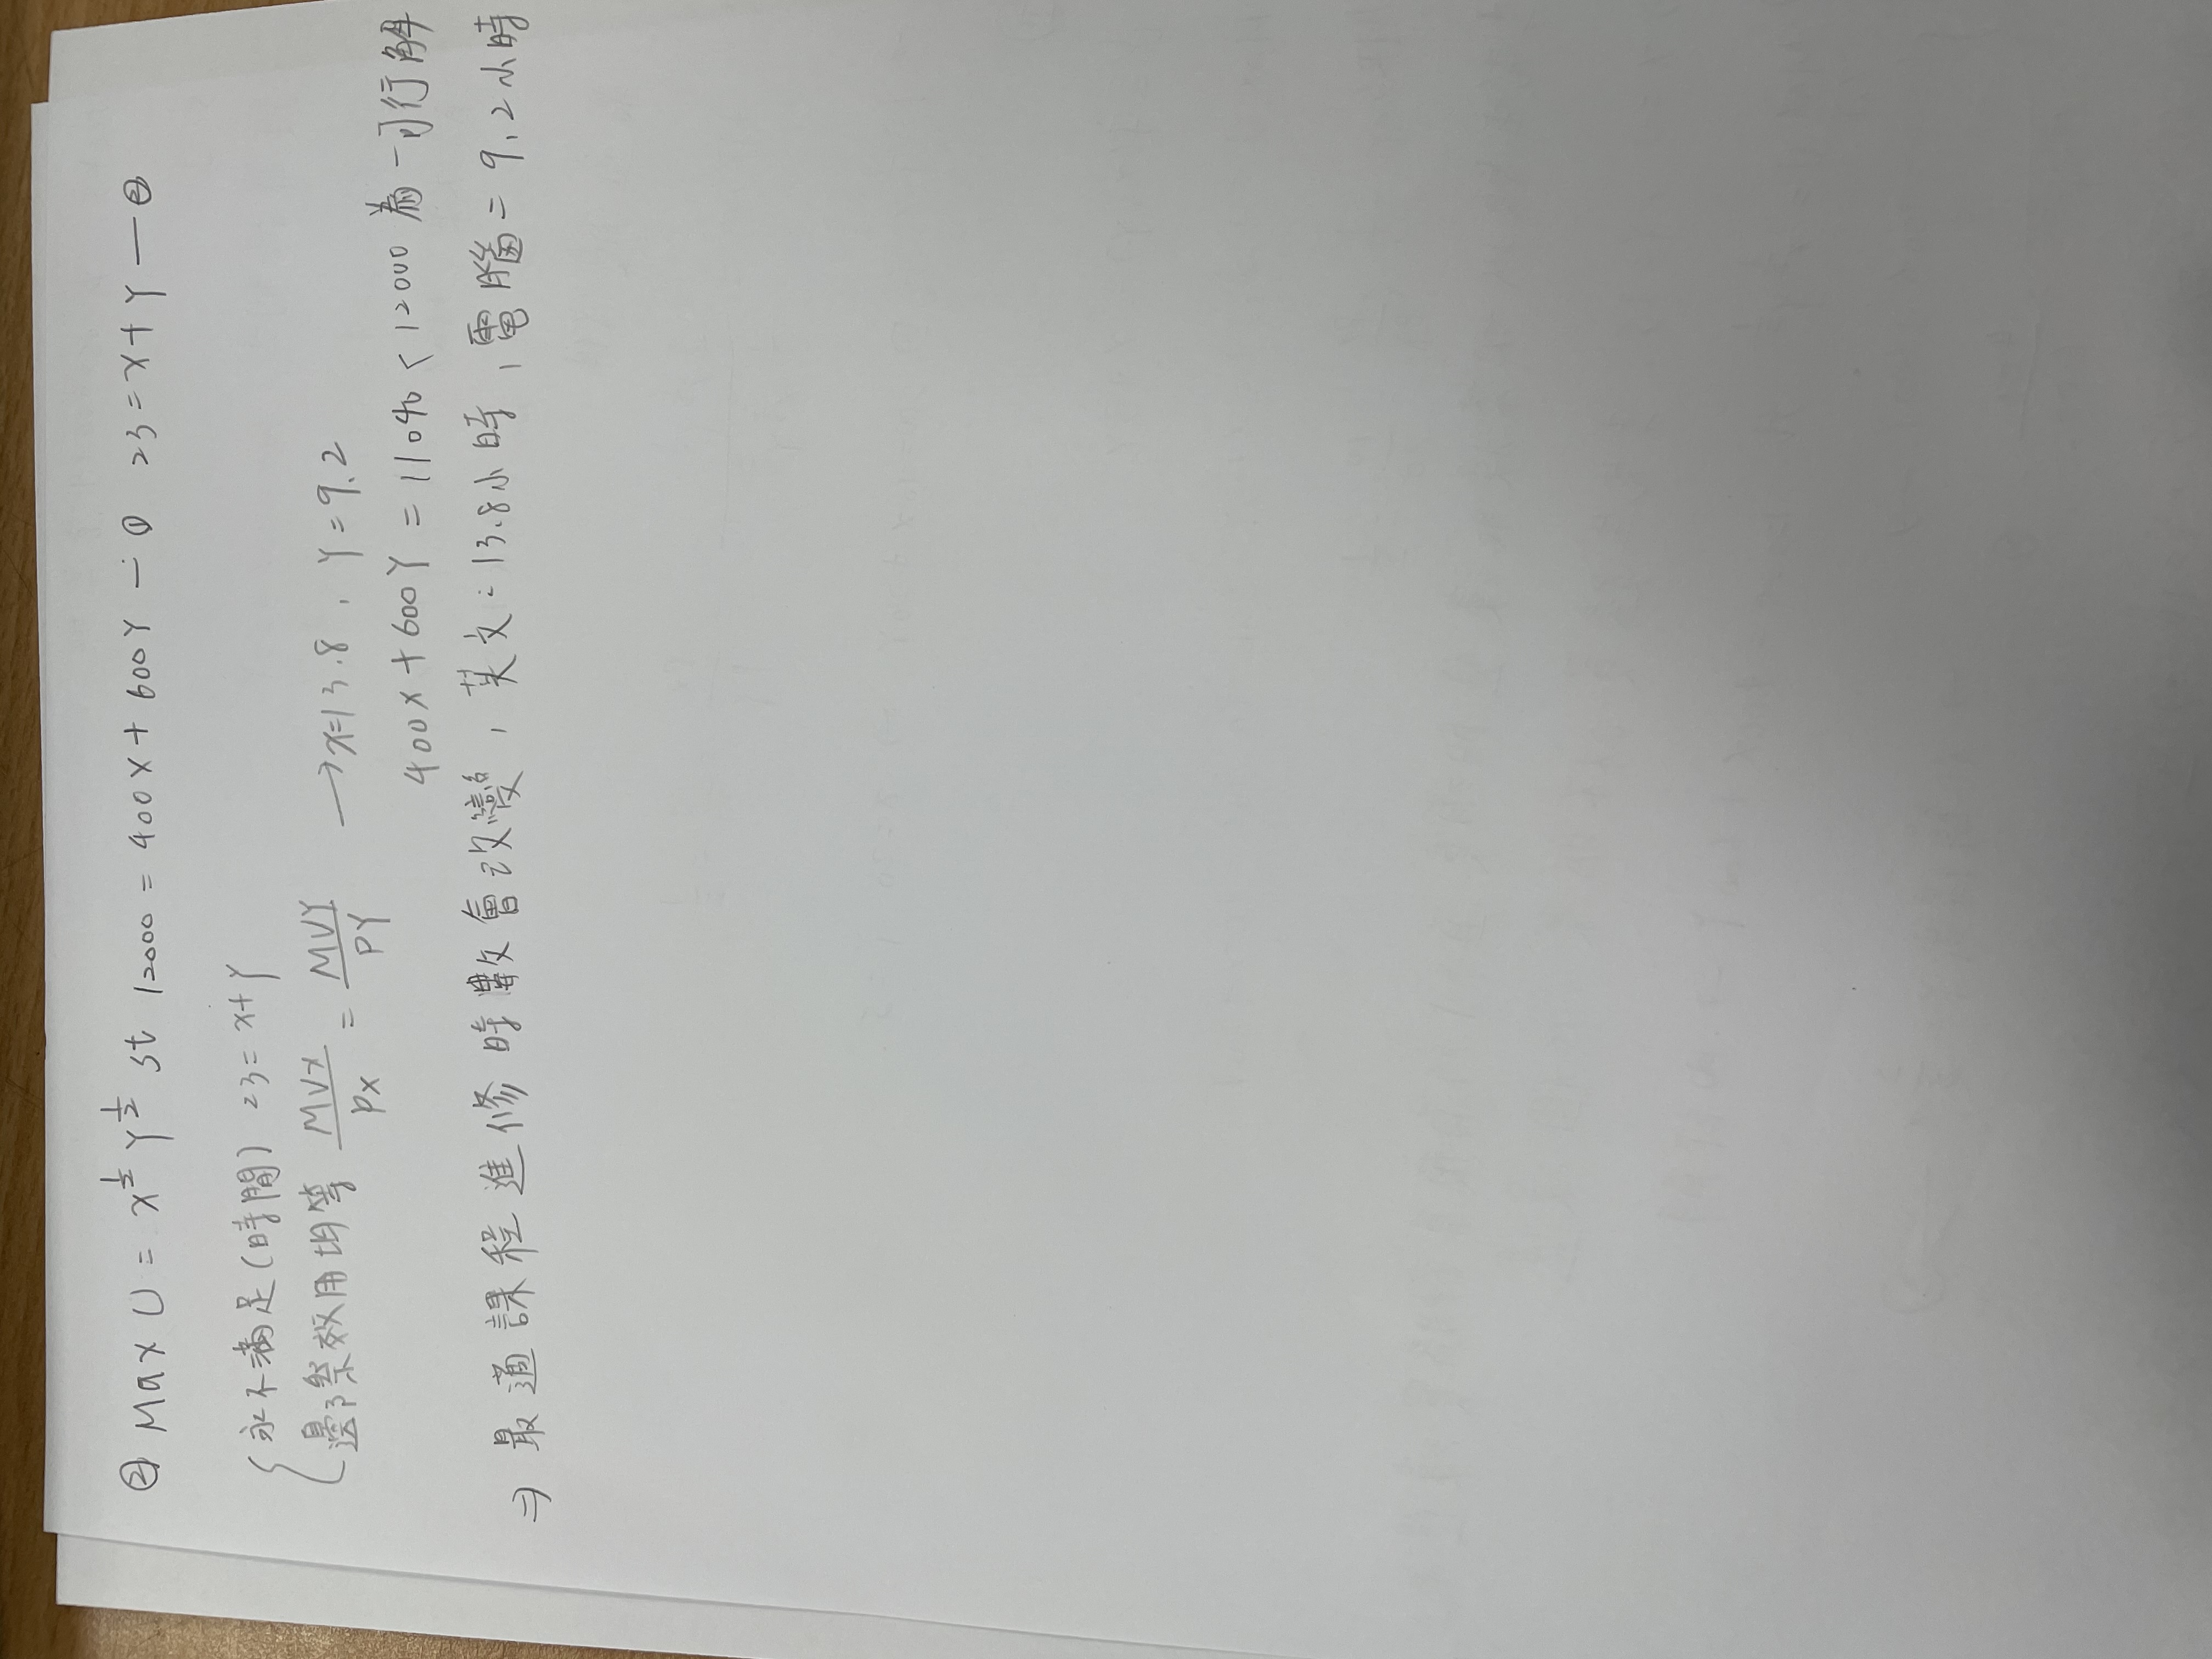 ② Max U = x^{1/2} Y^{1/2} st 12000 = 400X + 600Y — ① 23 = x + y — ②
永不滿足(時間) 23 = x + y
邊際效用均等 MUx/Px = MUY/PY → x=13.8 , Y=9.2
400X + 600Y = 11040 < 12000 為一可行解
⇒ 最適課程進修時數會改變, 英文=13.8小時, 電腦=9.2小時